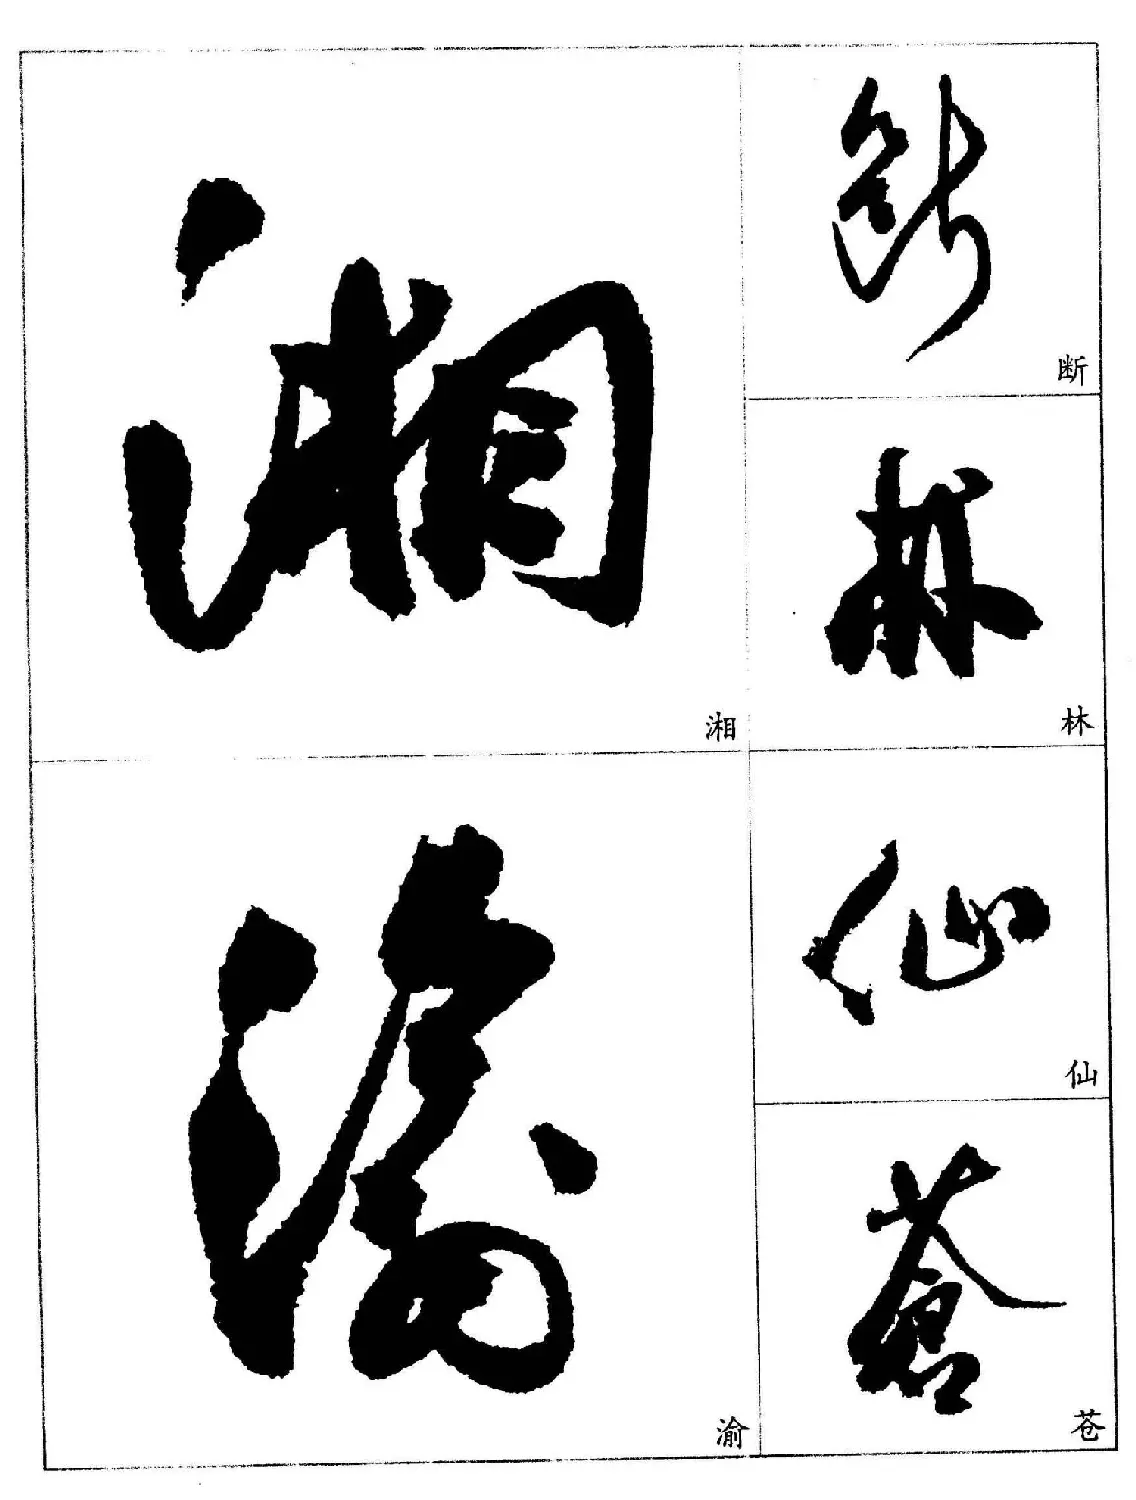 湘
湘
渝
渝
断
断
林
林
仙
仙
蒼
苍